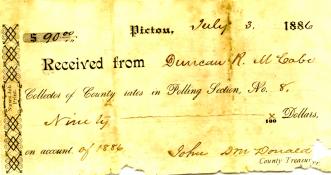 $ 90.00 Pictou, July 3, 1886
Received from Duncan R. McCabe
Collector of County rates in Polling Section, No. 8,
Ninety x/100 Dollars,
on account of 1886
John D McDonald
County Treasurer